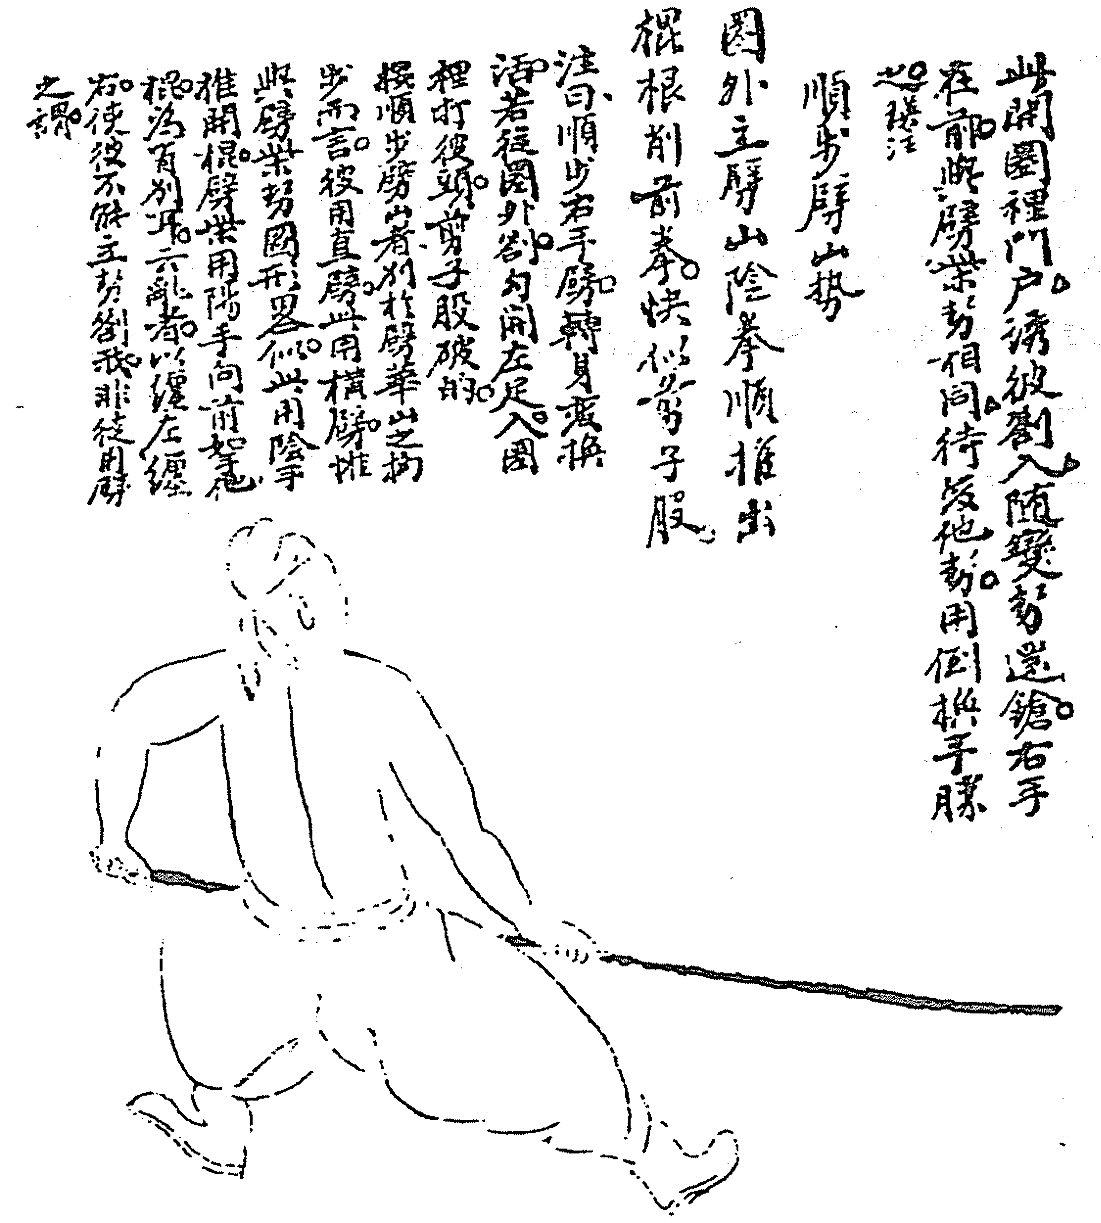 此開圈裡門户誘彼劄入随變勢還鎗右手
在前與劈柴勢相同待彼他勢用倒棋手勝
也瑛注
順步劈山勢
圈外立劈山陰拳順推出
棍根削前拳快似剪子股
注曰順步右手劈轉身变换
活若往圈外劄勾開左足入圈
裡打彼頭剪子股破的
按順步劈山者别於劈華山之拗
步而言彼用直劈此用横劈推
與劈柴勢圖形畧似此用陰手
推開棍劈柴用陽手向前如他
棍為有别耳六亂者以纒左纒
右使彼不能立勢劄我非徒用劈
之謂